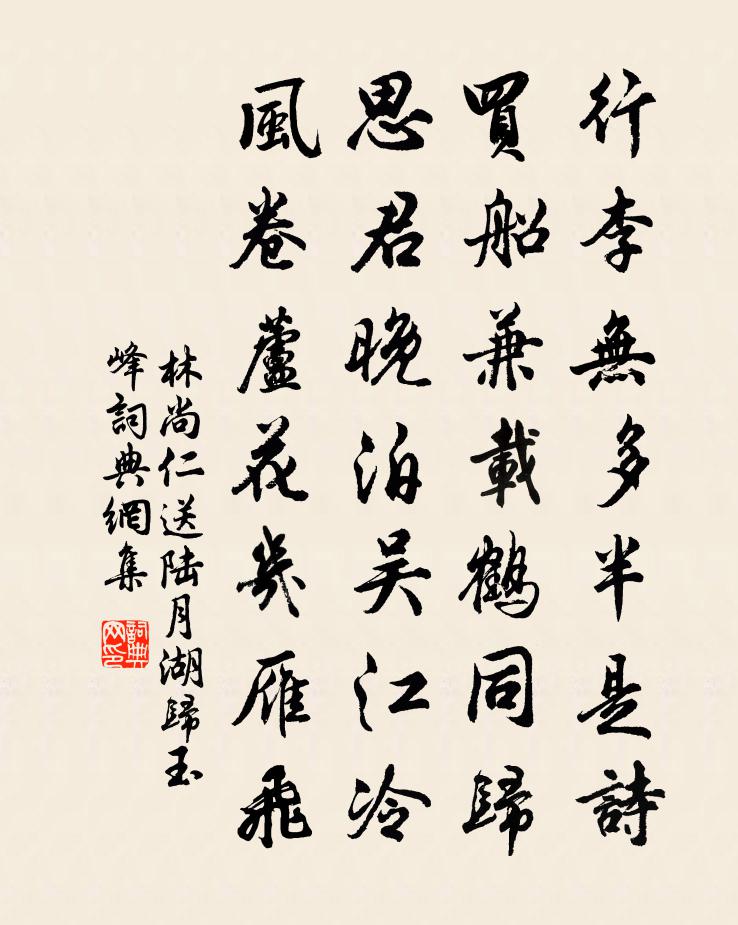 行李無多半是詩
買船兼載鶴同歸
思君晚泊吴江冷
風卷蘆花幾雁飛
林尚仁送陆月湖歸玉
峰詞典網集
詞典
网印